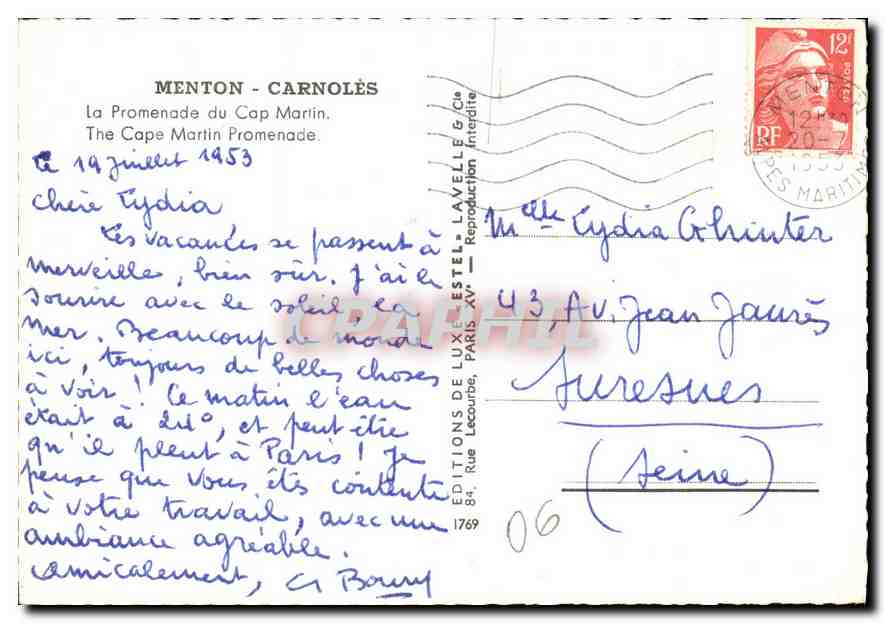 MENTON - CARNOLÈS
La Promenade du Cap Martin.
The Cape Martin Promenade.
Le 19 juillet 1953
Chère Lydia
Les vacances se passent à
merveille, bien sûr. J'ai le
sourire avec le soleil, la
mer. Beaucoup de monde
ici, toujours de belles choses
à voir ! Ce matin l'eau
était à 24°, et peut être
qu'il pleut à Paris ! Je
pense que vous êtes contente
à votre travail, avec une
ambiance agréable.
Amicalement,
EDITIONS DE LUXE "ESTEL" LAVELLE & Cie
84, Rue Lecourbe, PARIS XVe — Reproduction Interdite
1769
12F
POSTES
RF
MENTON
12H30
20-7
1953
ALPES MARITIMES
Melle Lydia Ghinter
43, Av. Jean Jaurès
Suresnes
(Seine)
06
CPAPHIL